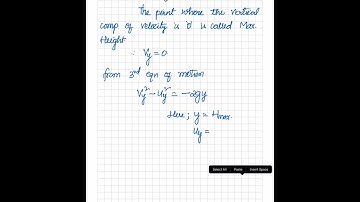 The point where the vertical
comp of velocity is 0 is called Max
Height
∴ Vy = 0
from 3rd eqn of motion
Vy² - Uy² = -2gy
Here; y = Hmax
Uy =
Select All Paste Insert Space